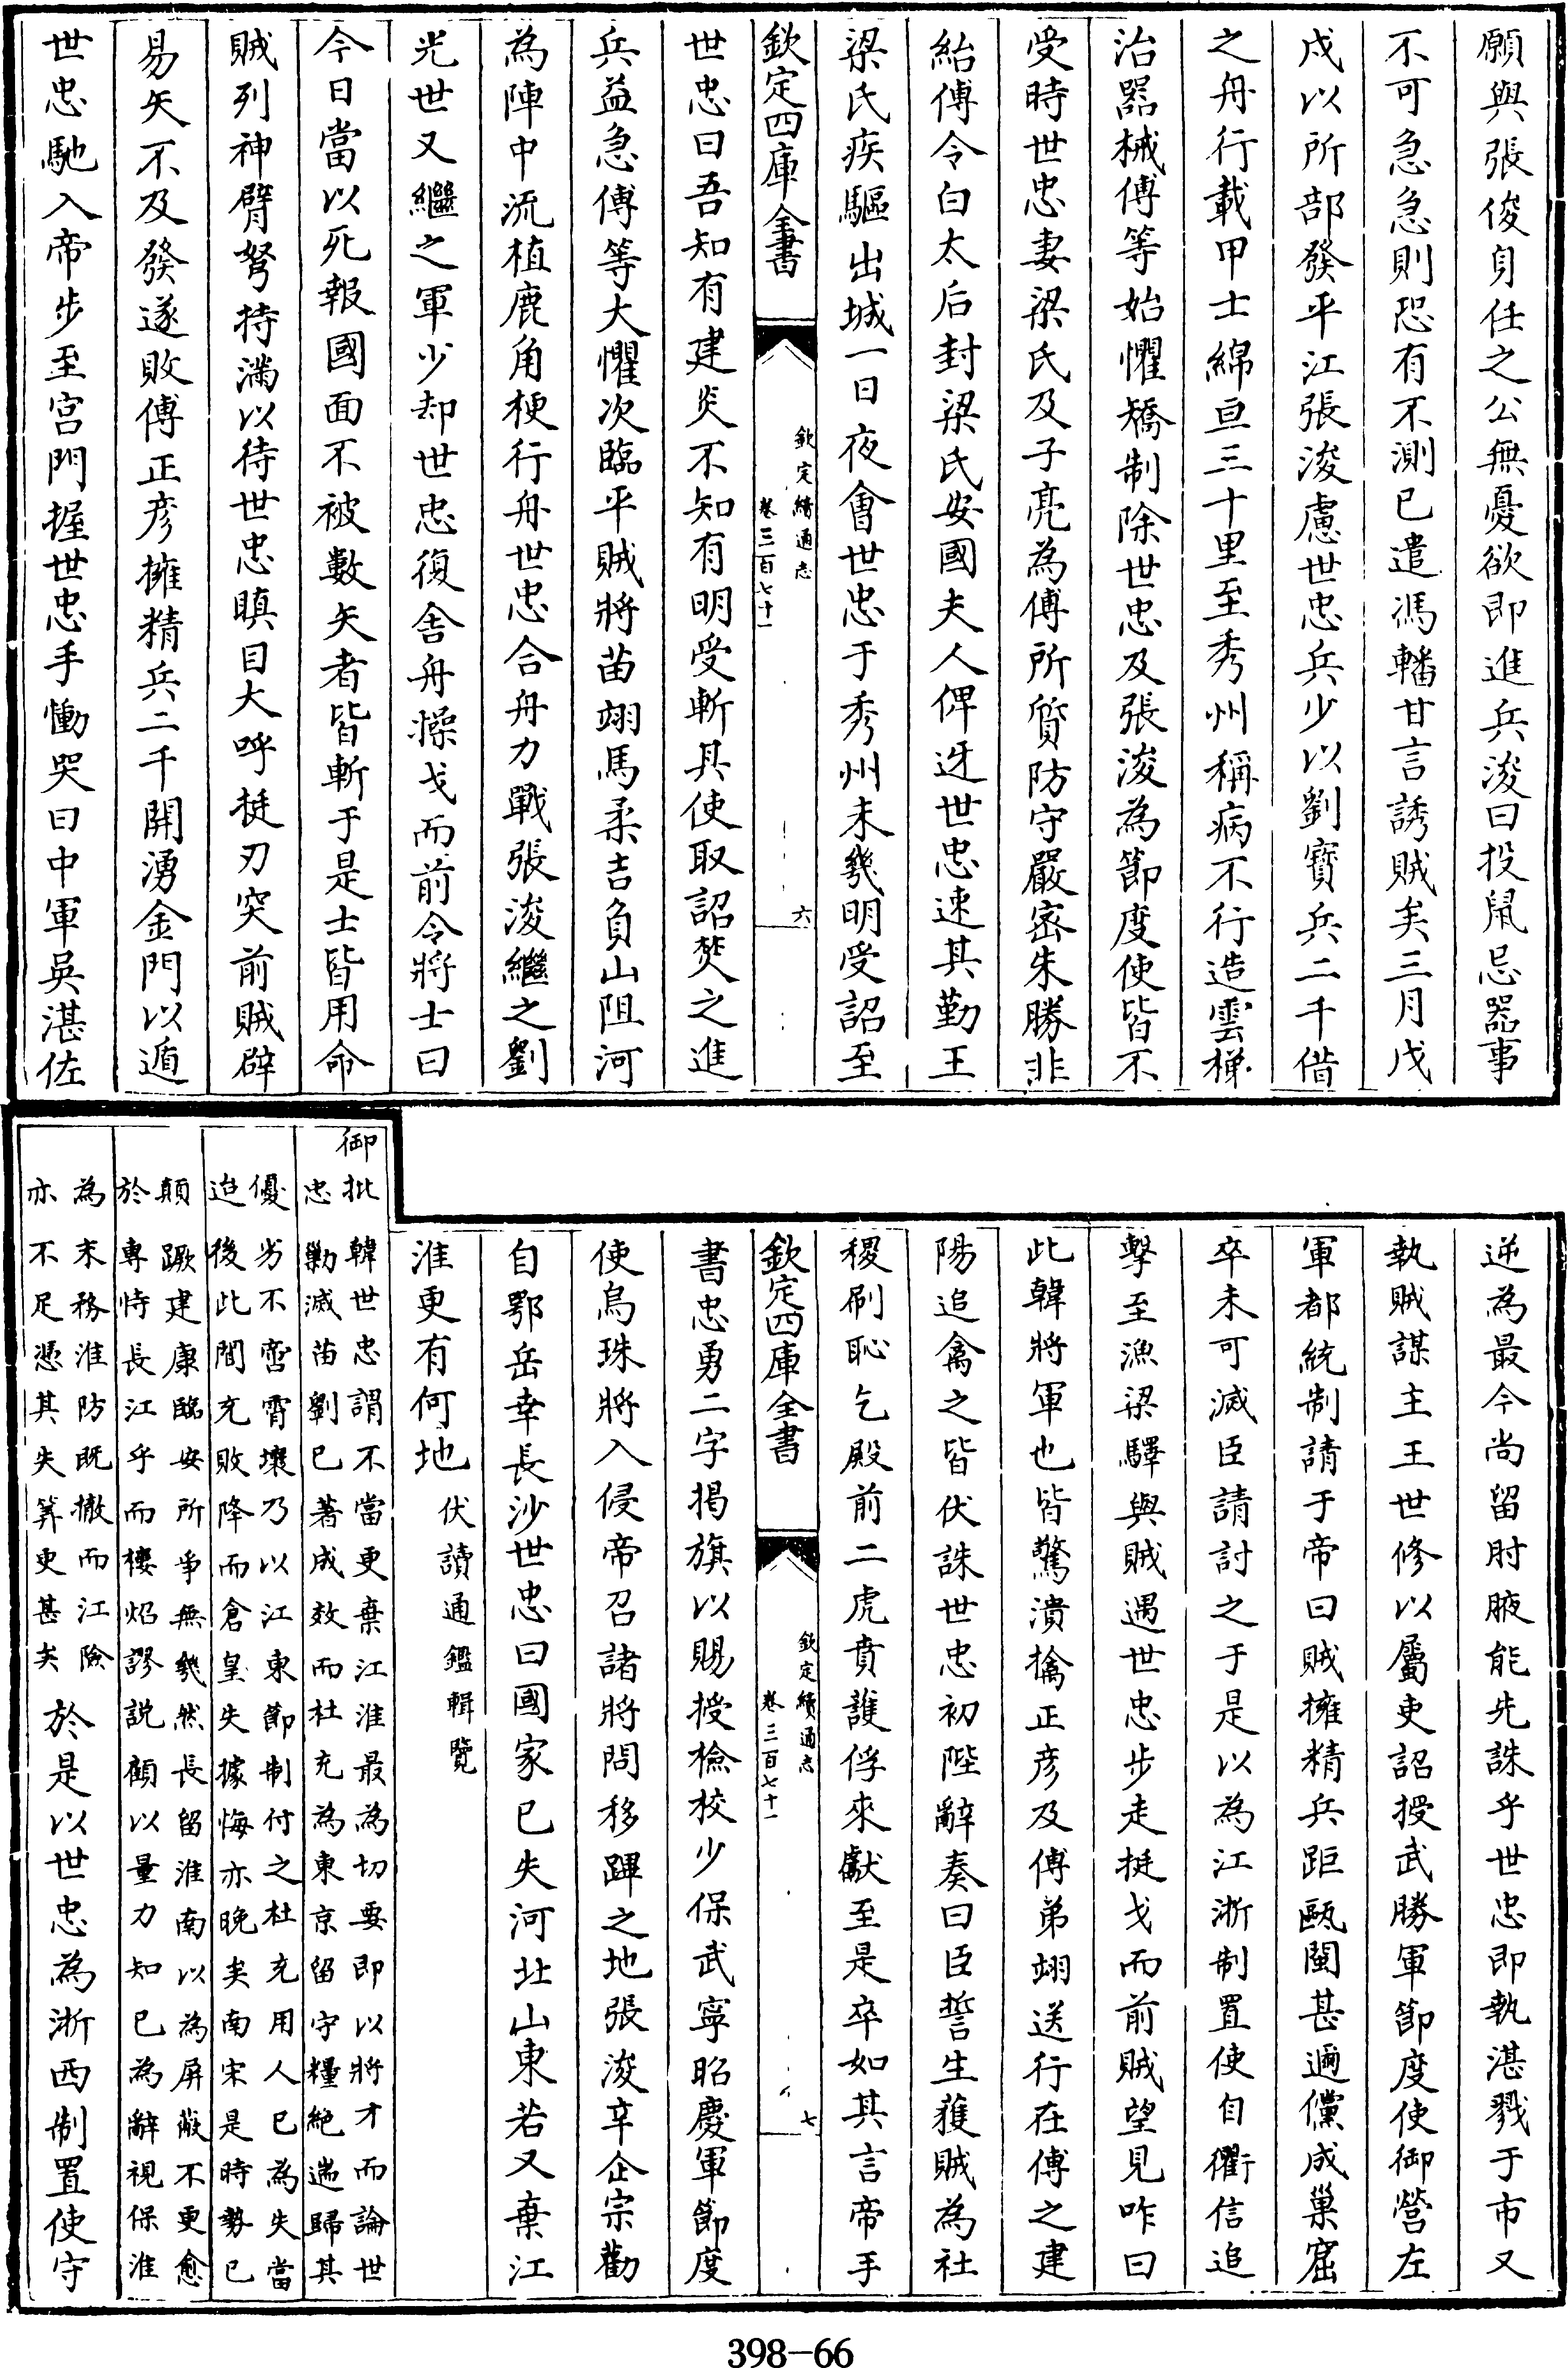 願與張俊身任之公無憂欲即進兵浚曰投鼠忌器事
不可急急則恐有不測已遣馮轓甘言誘賊矣三月戊
戌以所部發平江張浚慮世忠兵少以劉寶兵二千借
之舟行載甲士綿亘三十里至秀州稱病不行造雲梯
治器械傅等始懼矯制除世忠及張浚為節度使皆不
受時世忠妻梁氏及子亮為傅所質防守嚴密朱勝非
紿傅令白太后封梁氏安國夫人俾迓世忠速其勤王
梁氏疾驅出城一日夜會世忠于秀州未幾明受詔至
欽定四庫全書
欽定續通志
卷三百七十一
六
世忠曰吾知有建炎不知有明受斬其使取詔焚之進
兵益急傅等大懼次臨平賊將苗翊馬柔吉負山阻河
為陣中流植鹿角梗行舟世忠合舟力戰張浚繼之劉
光世又繼之軍少却世忠復舍舟操戈而前令將士曰
今日當以死報國面不被數矢者皆斬于是士皆用命
賊列神臂弩持滿以待世忠瞋目大呼挺刃突前賊辟
易矢不及發遂敗傅正彥擁精兵二千開湧金門以遁
世忠馳入帝步至宮門握世忠手慟哭曰中軍吳湛佐
逆為最今尚留肘腋能先誅乎世忠即執湛戮于市又
執賊謀主王世修以屬吏詔授武勝軍節度使御營左
軍都統制請于帝曰賊擁精兵距甌閩甚邇儻成巢窟
卒未可滅臣請討之于是以為江浙制置使自衢信追
擊至漁梁驛與賊遇世忠步走挺戈而前賊望見咋曰
此韓將軍也皆驚潰擒正彥及傅弟翊送行在傅之建
陽追禽之皆伏誅世忠初陛辭奏曰臣誓生獲賊為社
稷刷恥乞殿前二虎賁護俘來獻至是卒如其言帝手
欽定四庫全書
欽定續通志
卷三百七十一
七
書忠勇二字揭旗以賜授檢校少保武寧昭慶軍節度
使烏珠將入侵帝召諸將問移蹕之地張浚辛企宗勸
自鄂岳幸長沙世忠曰國家已失河北山東若又棄江
淮更有何地
伏讀通鑑輯覽
御批韓世忠謂不當更棄江淮最為切要即以將才而論世
忠勦滅苗劉已著成效而杜充為東京留守糧絕遄歸其
優劣不啻霄壤乃以江東節制付之杜充用人已為失當
迨後此間充敗降而倉皇失據悔亦晚矣南宋是時勢已
顛蹶建康臨安所爭無幾然長留淮南以為屏蔽不更愈
於專恃長江乎而樓炤謬說顧以量力知已為辭視保淮
為末務淮防既撤而江險
亦不足憑其失算更甚矣
於是以世忠為浙西制置使守
398-66